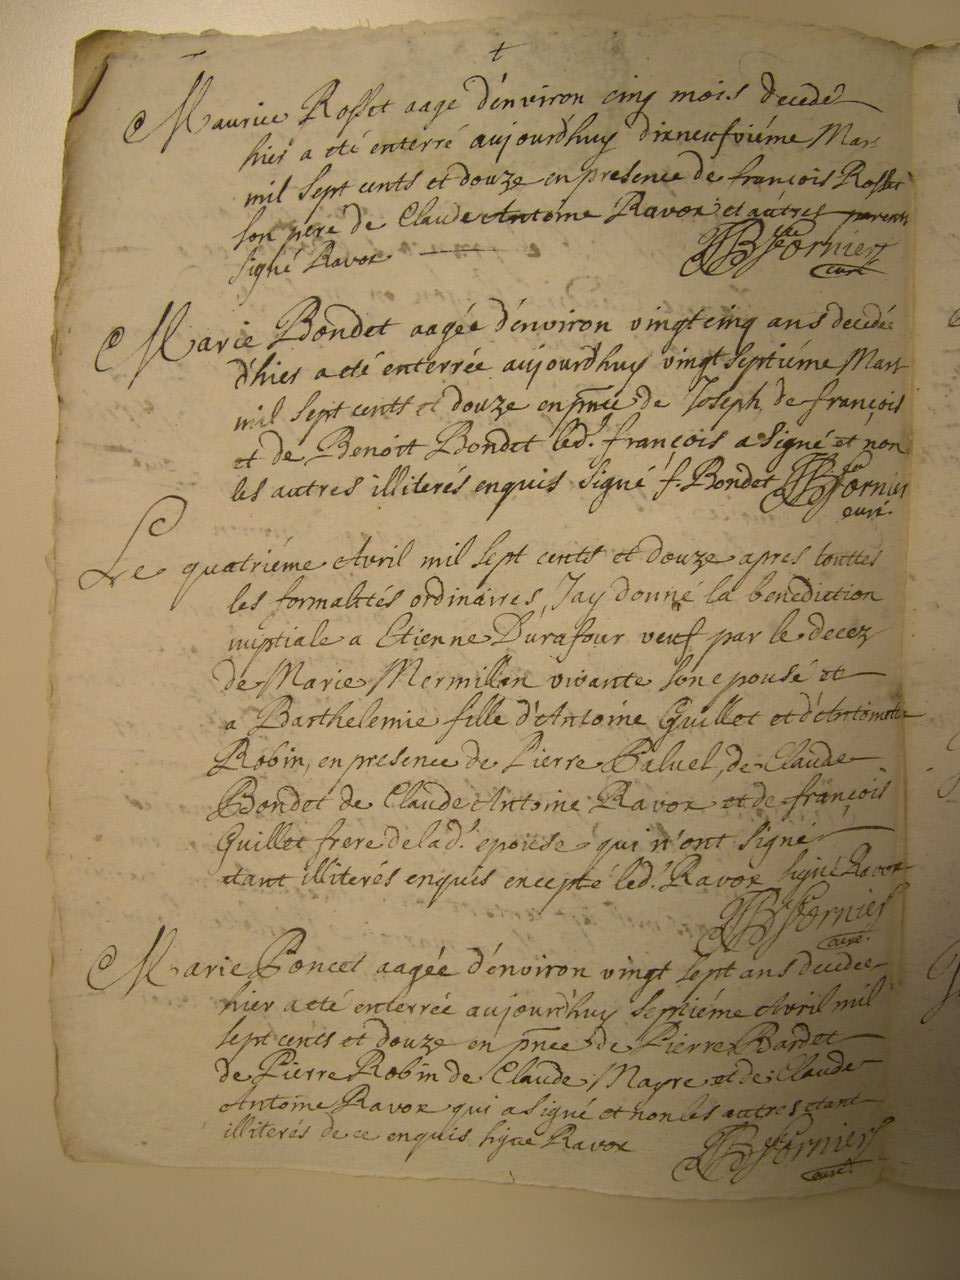 Maurice Rosset aage d'environ cinq mois decedé
hier a eté enterré aujourd'huy dixneufviéme Mars
mil sept cents et douze en presence de françois Rosset
son pere de Claude Antoine Ravox et autres parents
signé Ravox JB Fornier
curé
Marie Bondet aagée d'environ vingt cinq ans decedée
d'hier a eté enterrée aujourd'huy vingt septiéme Mars
mil sept cents et douze en pnce de Joseph, de françois
et de Benoit Bondet led. françois a signé et non
les autres illiterés enquis signé f. Bondet JB Fornier
curé.
Le quatriéme Avril mil sept cents et douze apres touttes
les formalités ordinaires, J'ay donné la benediction
nuptiale a Etienne Durafour veuf par le decez
de Marie Mermillon vivante son epousé et
a Barthelemie fille d'Antoine Guillot et d'Antoinette
Robin, en presence de Pierre Paluel, de Claude
Bondet de Claude Antoine Ravox et de françois
Guillot frere de lad. epouse qui n'ont signé
etant illiterés enquis excepté led. Ravox signé Ravox
JB Fornier
curé.
Marie Poncet aagée d'environ vingt sept ans decedée
hier a eté enterrée aujourd'huy septiéme Avril mil
sept cents et douze en pnce de Pierre Bardet
de Pierre Robin de Claude Mayre et de Claude
Antoine Ravox qui a signé et non les autres etant
illiterés de ce enquis signé Ravox JB Fornier
curé.